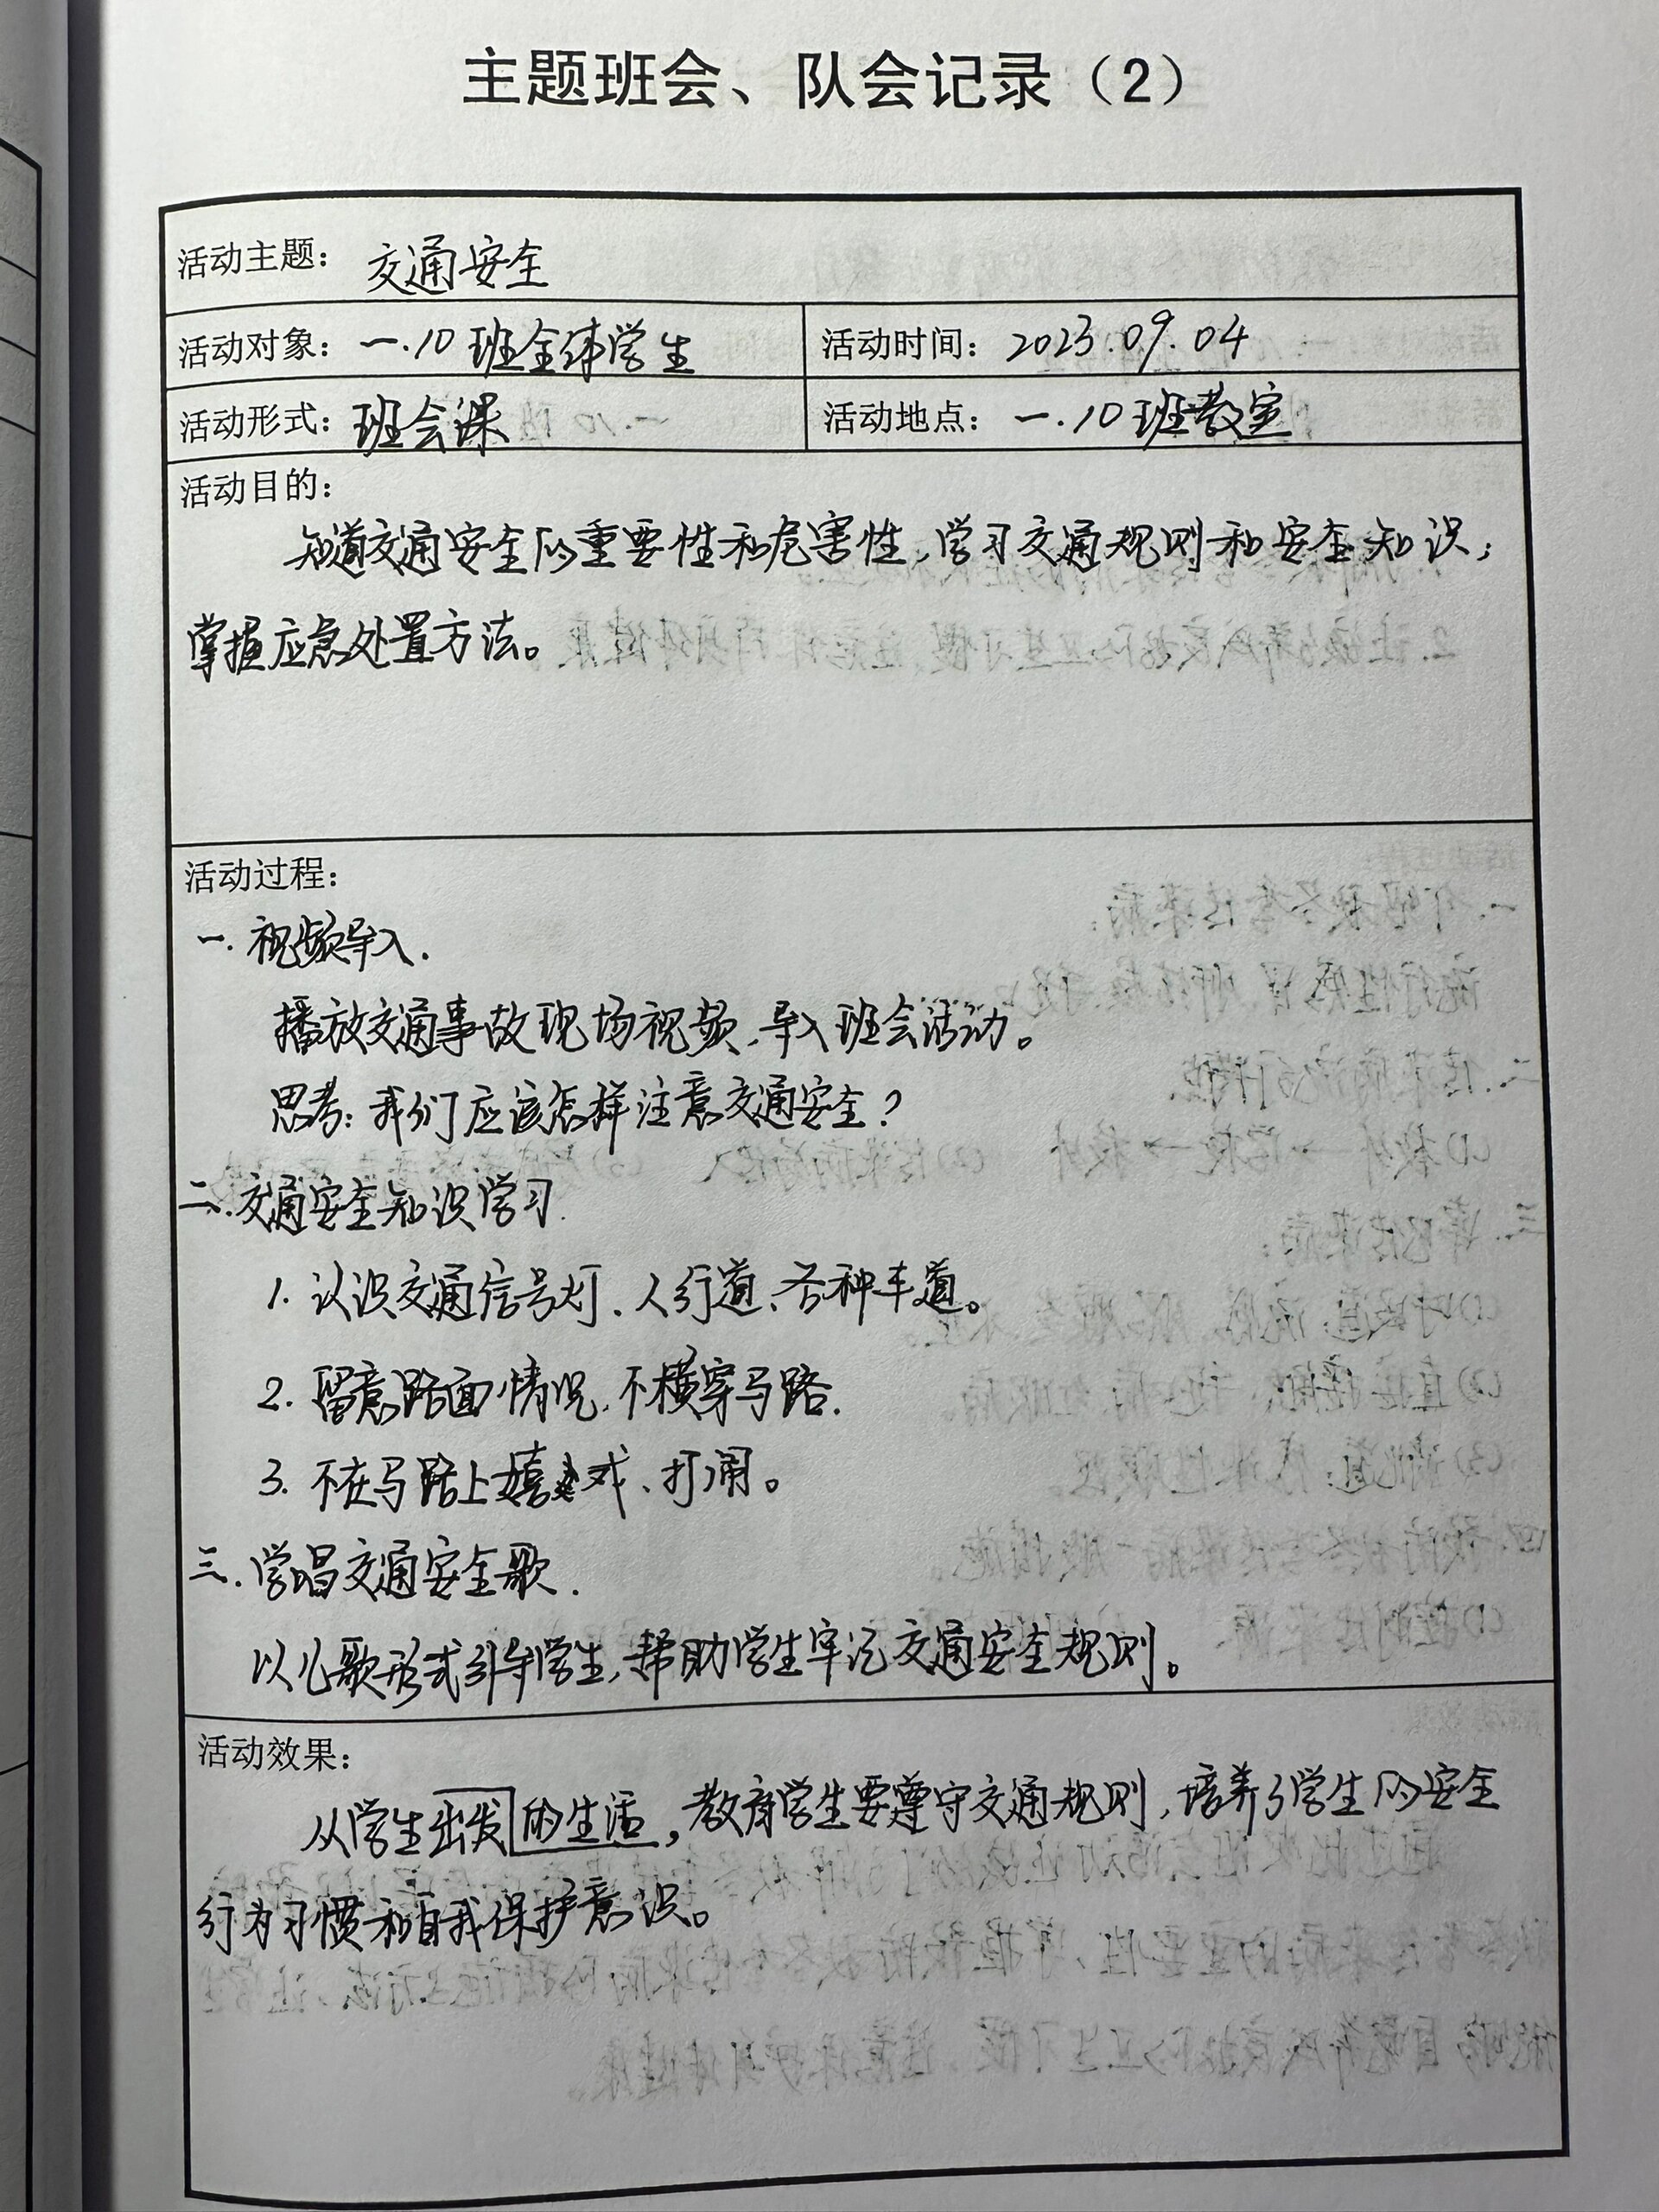 主题班会、队会记录（2）
活动主题： 交通安全
活动对象： 一.10 班全体学生 活动时间： 2023.09.04
活动形式： 班会课 活动地点： 一.10 班教室
活动目的：
知道交通安全的重要性和危害性，学习交通规则和安全知识；
掌握应急处置方法。
活动过程：
一. 视频导入.
播放交通事故现场视频，导入班会活动。
思考：我们应该怎样注意交通安全？
二. 交通安全知识学习.
1. 认识交通信号灯、人行道、各种车道。
2. 留意路面情况，不横穿马路.
3. 不在马路上嬉戏、打闹。
三. 学唱交通安全歌.
以儿歌形式引导学生，帮助学生牢记交通安全规则。
活动效果：
从学生出发的生活，教育学生要遵守交通规则，培养了学生的安全
行为习惯和自我保护意识。